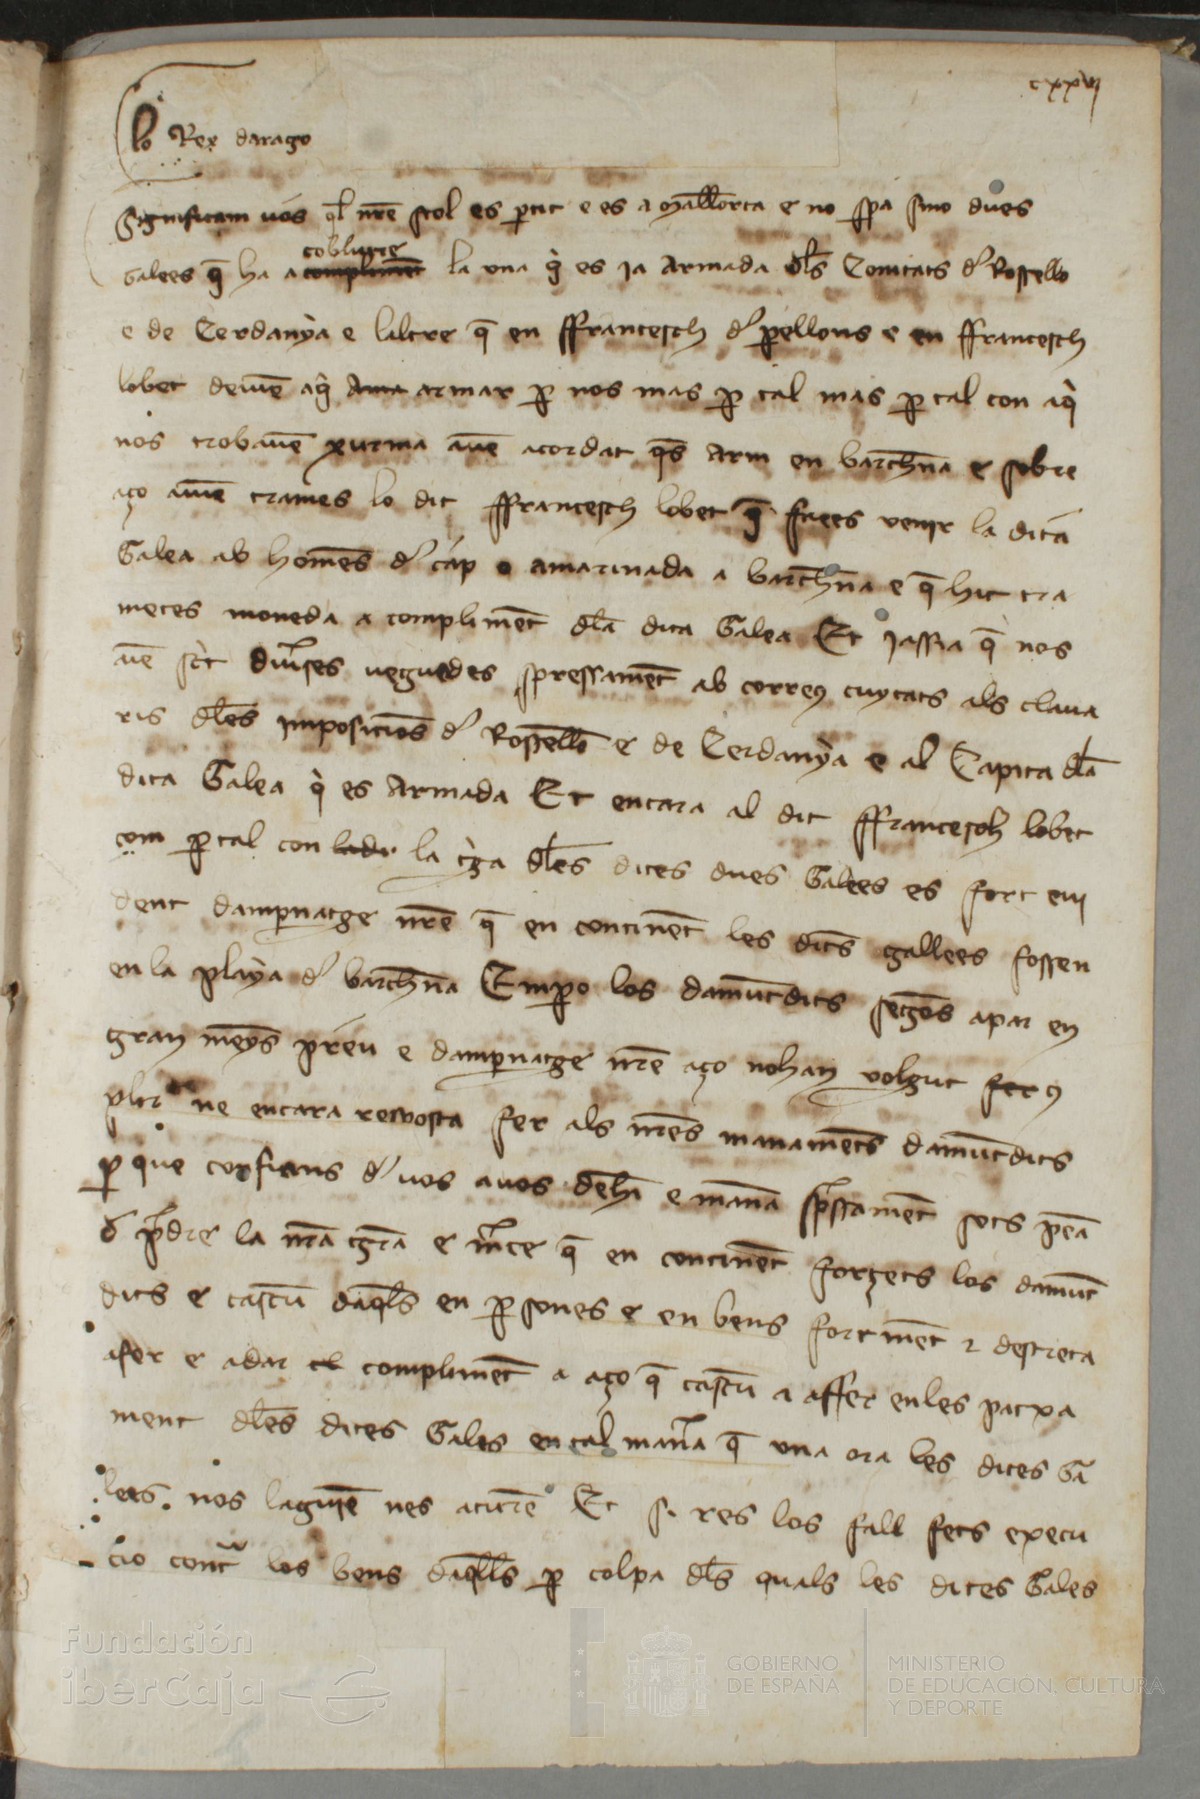 cxxvj
Lo Rey darago
Significam uos ql nr̄e stol es ꝑtit e es a Mallorca e no spa sino dues
coblliure
Galees q̄ ha a compliment la una q̄ es ja Armada dl̄s Comtats d Rossello
e de Cerdanya e laltre q̄ en ffrancesch d Pellons e en ffrancesch
lobet deuiē aq̄ Ama armar ꝑ nos mas ꝑ tal mas ꝑ tal con aq̄
nos trobauē xurma auē acordat q̄s Arm en barch̄na e sobre
aço auē trames lo dit ffrancesch lobet q̄ faees venir la dita
Galea ab homēs d cap o amarinada a barch̄na e q̄ hic tra
meces moneda a complimēt dl̄a dita Galea Et jassia q̄ nos
auē sc̄t diūses uegudes spressamēt ab correus cuytats als claua
ris dl̄es imposicioͦs d Rossellō e de Cerdanya e al Capita dl̄a
dita Galea q̄ es Armada Et encara al dit ffrancesch lobet
com ꝑ tal con ladi la tr̄ga dl̄es dites dues Galees es fort eui
dent dampnatge nr̄e q̄ en continēt les dits̄ gallees fossen
en la playa d barch̄na Emꝑo los damūtdits segōs apar en
gran meys preu e dampnatge nr̄e aço nohan volgut fer
ultra ne encara resposta fer als nr̄es manamēts damūtdits
ꝑ que confians d uos auos dehī e manā sp̄ssamēt sots pēa
d p̄dre la nr̄a gr̄a e m̄ce q̄ en continēt forçets los damūt
dits e cascū daql̄s en ꝑsones e en bens fortmēt e destreta
afer e adar cl complimēt a aço q̄ cascū a affer enles patxa
ment dl̄es dites Gales en tal man̄a q̄ una ora les dites Ga
lees nos laguiē nes aturē Et si res los fall fets execu
cio cont̄ los bens daql̄ls ꝑ colpa dl̄s quals les dites Gales
Fundación
iberCaja
GOBIERNO
DE ESPAÑA
MINISTERIO
DE EDUCACIÓN, CULTURA
Y DEPORTE